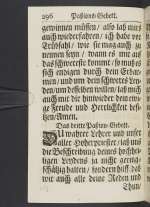 296 Passions-Gebett.
gewinnen müssen / als laß mirs
auch wiederfahren / ich habe vor
Trübsahl / wie sie mag auch zu
nennen seyn / wann es mir auf
das schwereste komt / so muß es
sich endigen durch den
und um dem schweres Ley-
den / um desselben willen / laß mich
auch mit dir hinwieder dem ewi-
ge Freude und Herrlichkeit beſi-
tzen / Amen.
Das dritte Passion-Gebett.
DU wahrer Lehrer und unser
aller Hoherpriester / laß uns
die Beschreibung deines hochhei-
ligen Leydens ja nicht gering-
schätzig halten / sondern hilf daß
wir auch alle deine Reden und
Thun /